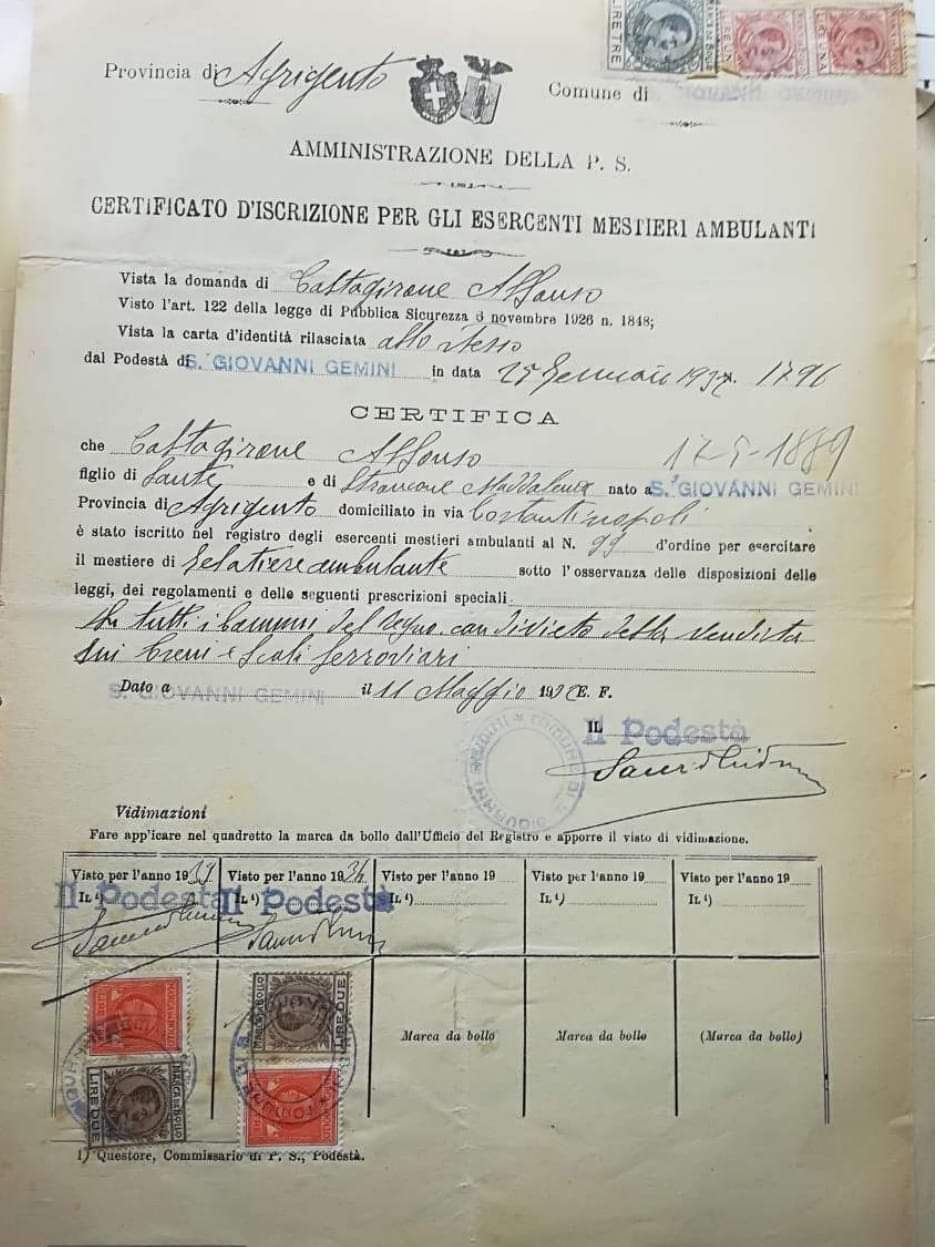 LIRE TRE
Provincia di Agrigento Comune di
AMMINISTRAZIONE DELLA P. S.
CERTIFICATO D'ISCRIZIONE PER GLI ESERCENTI MESTIERI AMBULANTI
Vista la domanda di Caltagirone Alfonso
Visto l'art. 122 della legge di Pubblica Sicurezza 6 novembre 1926 n. 1848;
Vista la carta d'identità rilasciata allo stesso
dal Podestà di S. GIOVANNI GEMINI in data 25 Gennaio 1932 1796
CERTIFICA
che Caltagirone Alfonso 17-5-1889
figlio di Sante e di Maddalena nato a S. GIOVANNI GEMINI
Provincia di Agrigento domiciliato in via Costantinopoli
è stato iscritto nel registro degli esercenti mestieri ambulanti al N. 99 d'ordine per esercitare
il mestiere di Gelatiere ambulante sotto l'osservanza delle disposizioni delle
leggi, dei regolamenti e delle seguenti prescrizioni speciali
In tutti i Comuni del Regno con divieto della vendita
sui treni e scali ferroviari
Dato a S. GIOVANNI GEMINI il 11 Maggio 193 E. F.
IL Il Podestà
Vidimazioni
Fare app'icare nel quadretto la marca da bollo dall'Ufficio del Registro e apporre il visto di vidimazione.
Visto per l'anno 19 Visto per l'anno 1934 Visto per l'anno 19 Visto per l'anno 19 Visto per l'anno 19
IL ¹) Il Podestà IL ¹) Il Podestà IL ¹) IL ¹) IL ¹)
MARCA DA BOLLO LIRE DUE
Marca da bollo Marca da bollo (Marca da bollo)
MARCA DA BOLLO LIRE DUE
1) Questore, Commissario di P. S., Podestà.